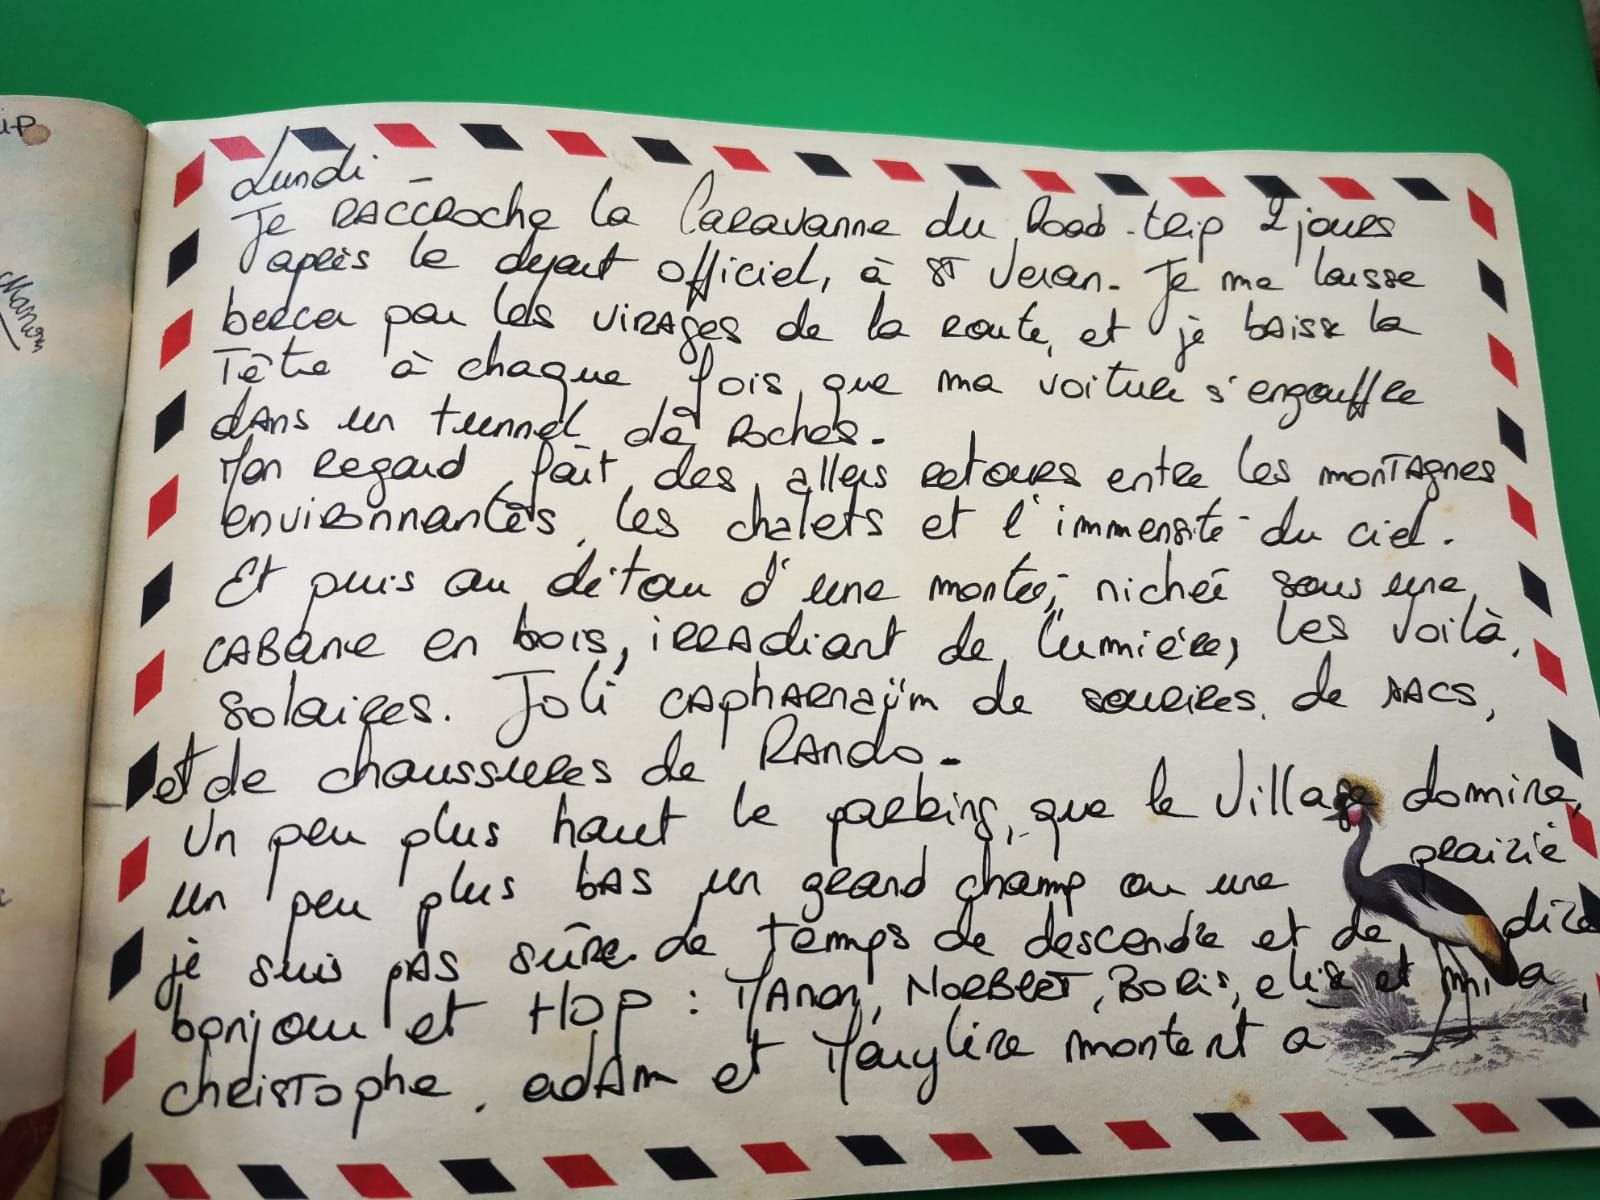 Lundi
Je RACCROche la Caravanne du Road-trip 2 jours
après le depart officiel, à ST Veran. Je me laisse
bercer par les VIRAGES de la route, et je baisse la
Tête à chaque fois que ma voiture s'engouffre
dans un tunnel de Roches.
Mon Regard fait des allers retours entre les monTAgnes
environnantes, les chalets et l'immensité du ciel.
Et puis au détour d'une montée, nichée sous une
CABane en bois, iRRAdiant de lumière, les voilà,
solaires. Joli CAPHARnaüm de sourires, de sacs,
et de chaussures de Rando.
Un peu plus haut le parking, que le village domine,
un peu plus bas un grand champ ou une prairie
je suis pas sûre. de temps de descendre et de dire
bonjour et HOP : Manon, NORBERT, BORis, elise et mila,
chrisTophe, adAm et Maylire montent a
Manon